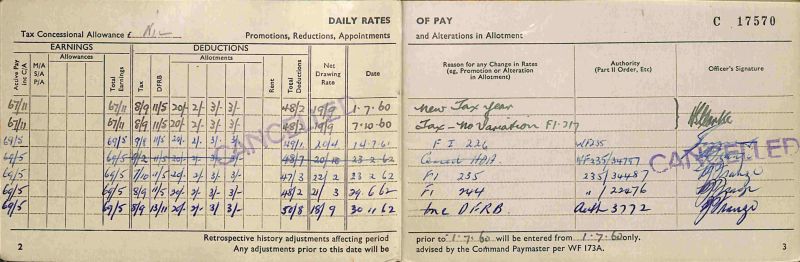 DAILY RATES
Tax Concessional Allowance £ Nil Promotions, Reductions, Appointments
EARNINGS DEDUCTIONS
Active Pay Inc C/A M/A S/A P/A Allowances Total Earnings Tax DFRB Allotments Rent Total Deductions Net Drawing Rate Date
67/11 67/11 8/9 11/5 20/- 2/- 3/- 3/- 48/2 19/9 1·7·60
67/11 67/11 8/9 11/5 20/- 2/- 3/- 3/- 48/2 19/9 7·10·60
69/5 69/5 11/5 20/- 2/- 3/- 3/- 49/1 20/4
69/5 69/5 9/2 11/5 20/- 2/- 3/- 3/- 48/7 20/10 23 2 62
69/5 69/5 7/10 11/5 20/- 2/- 3/- 3/- 47/3 22/2 23 2 62
69/5 69/5 8/9 11/5 20/- 2/- 3/- 3/- 48/2 21/3 29 6 62
69/5 69/5 8/9 13/11 20/- 2/- 3/- 3/- 50/8 18/9 30 11 62
CANCELLED
Retrospective history adjustments affecting period
2 Any adjustments prior to this date will be
OF PAY C 17570
and Alterations in Allotment
Reason for any Change in Rates (eg, Promotion or Alteration in Allotment) Authority (Part II Order, Etc) Officer's Signature
New Tax year
Tax - No Variation F1·217
F I 226 WF235
WF235/34487
F1 235 235/34487
F1 244 " /22476
Inc DFRB. Auth 3772
CANCELLED
prior to 1·7·60 will be entered from 1·7·60 only.
advised by the Command Paymaster per WF 173A. 3